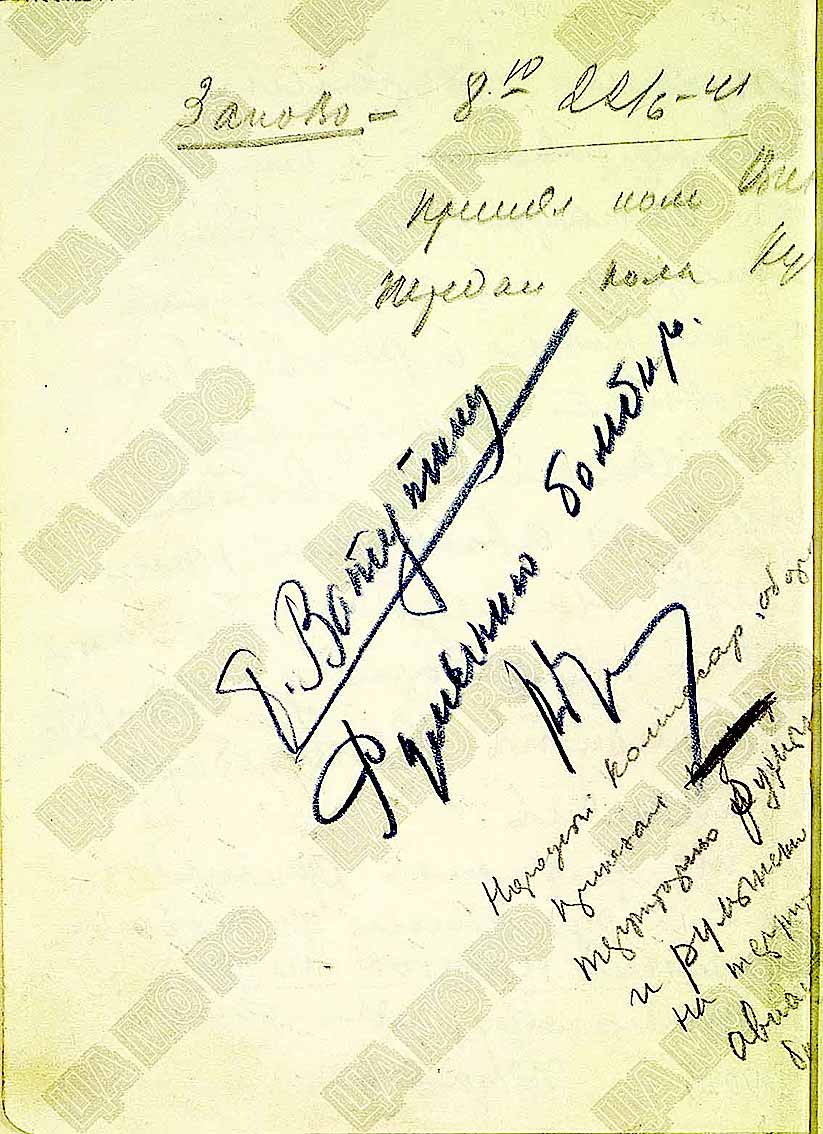 ЗапОВО – 8.10 22/6-41
Принял полк
Передал полк
т. Ватутину
Румынию бомбир.
Народный комиссар обор
приказал
территорию Румынии
и румынски
на терри
авиа
ЦА МО РФ